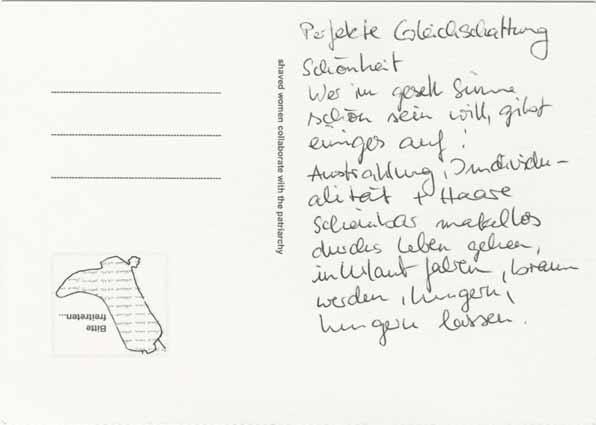 Perfekte Gleichschaltung
Schönheit
Wer im gesell. Sinne
schön sein will, gibt
einiges auf!
Ausstrahlung, Individu-
alität + Haare
Scheinbar makellos
durchs Leben gehen,
in Urlaub fahren, braun
werden, hungern,
hungern lassen.
shaved women collaborate with the patriarchy
Bitte
freitreten...